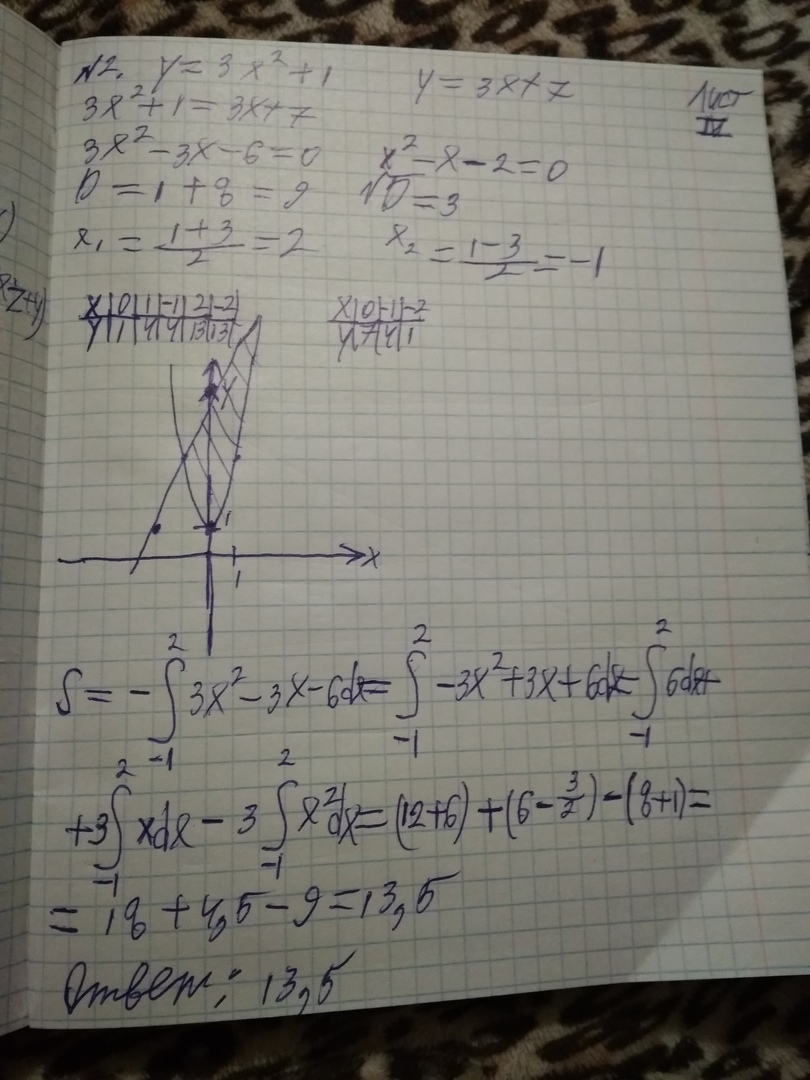 №2. y = 3x² + 1    y = 3x + 7    Лист IV
3x² + 1 = 3x + 7
3x² - 3x - 6 = 0    x² - x - 2 = 0
D = 1 + 8 = 9    √D = 3
x₁ = (1+3)/2 = 2    x₂ = (1-3)/2 = -1
x|0|1|-1|2|-2|    x|0|-1|-2
y|1|4|4|13|13|    y|7|4|1
y
1
x
1
S = -∫₋₁² 3x² - 3x - 6dx = ∫₋₁² -3x² + 3x + 6dx = ∫₋₁² 6dx +
+ 3∫₋₁² xdx - 3∫₋₁² x²dx = (12+6) + (6 - 3/2) - (8+1) =
= 18 + 4,5 - 9 = 13,5
Ответ: 13,5